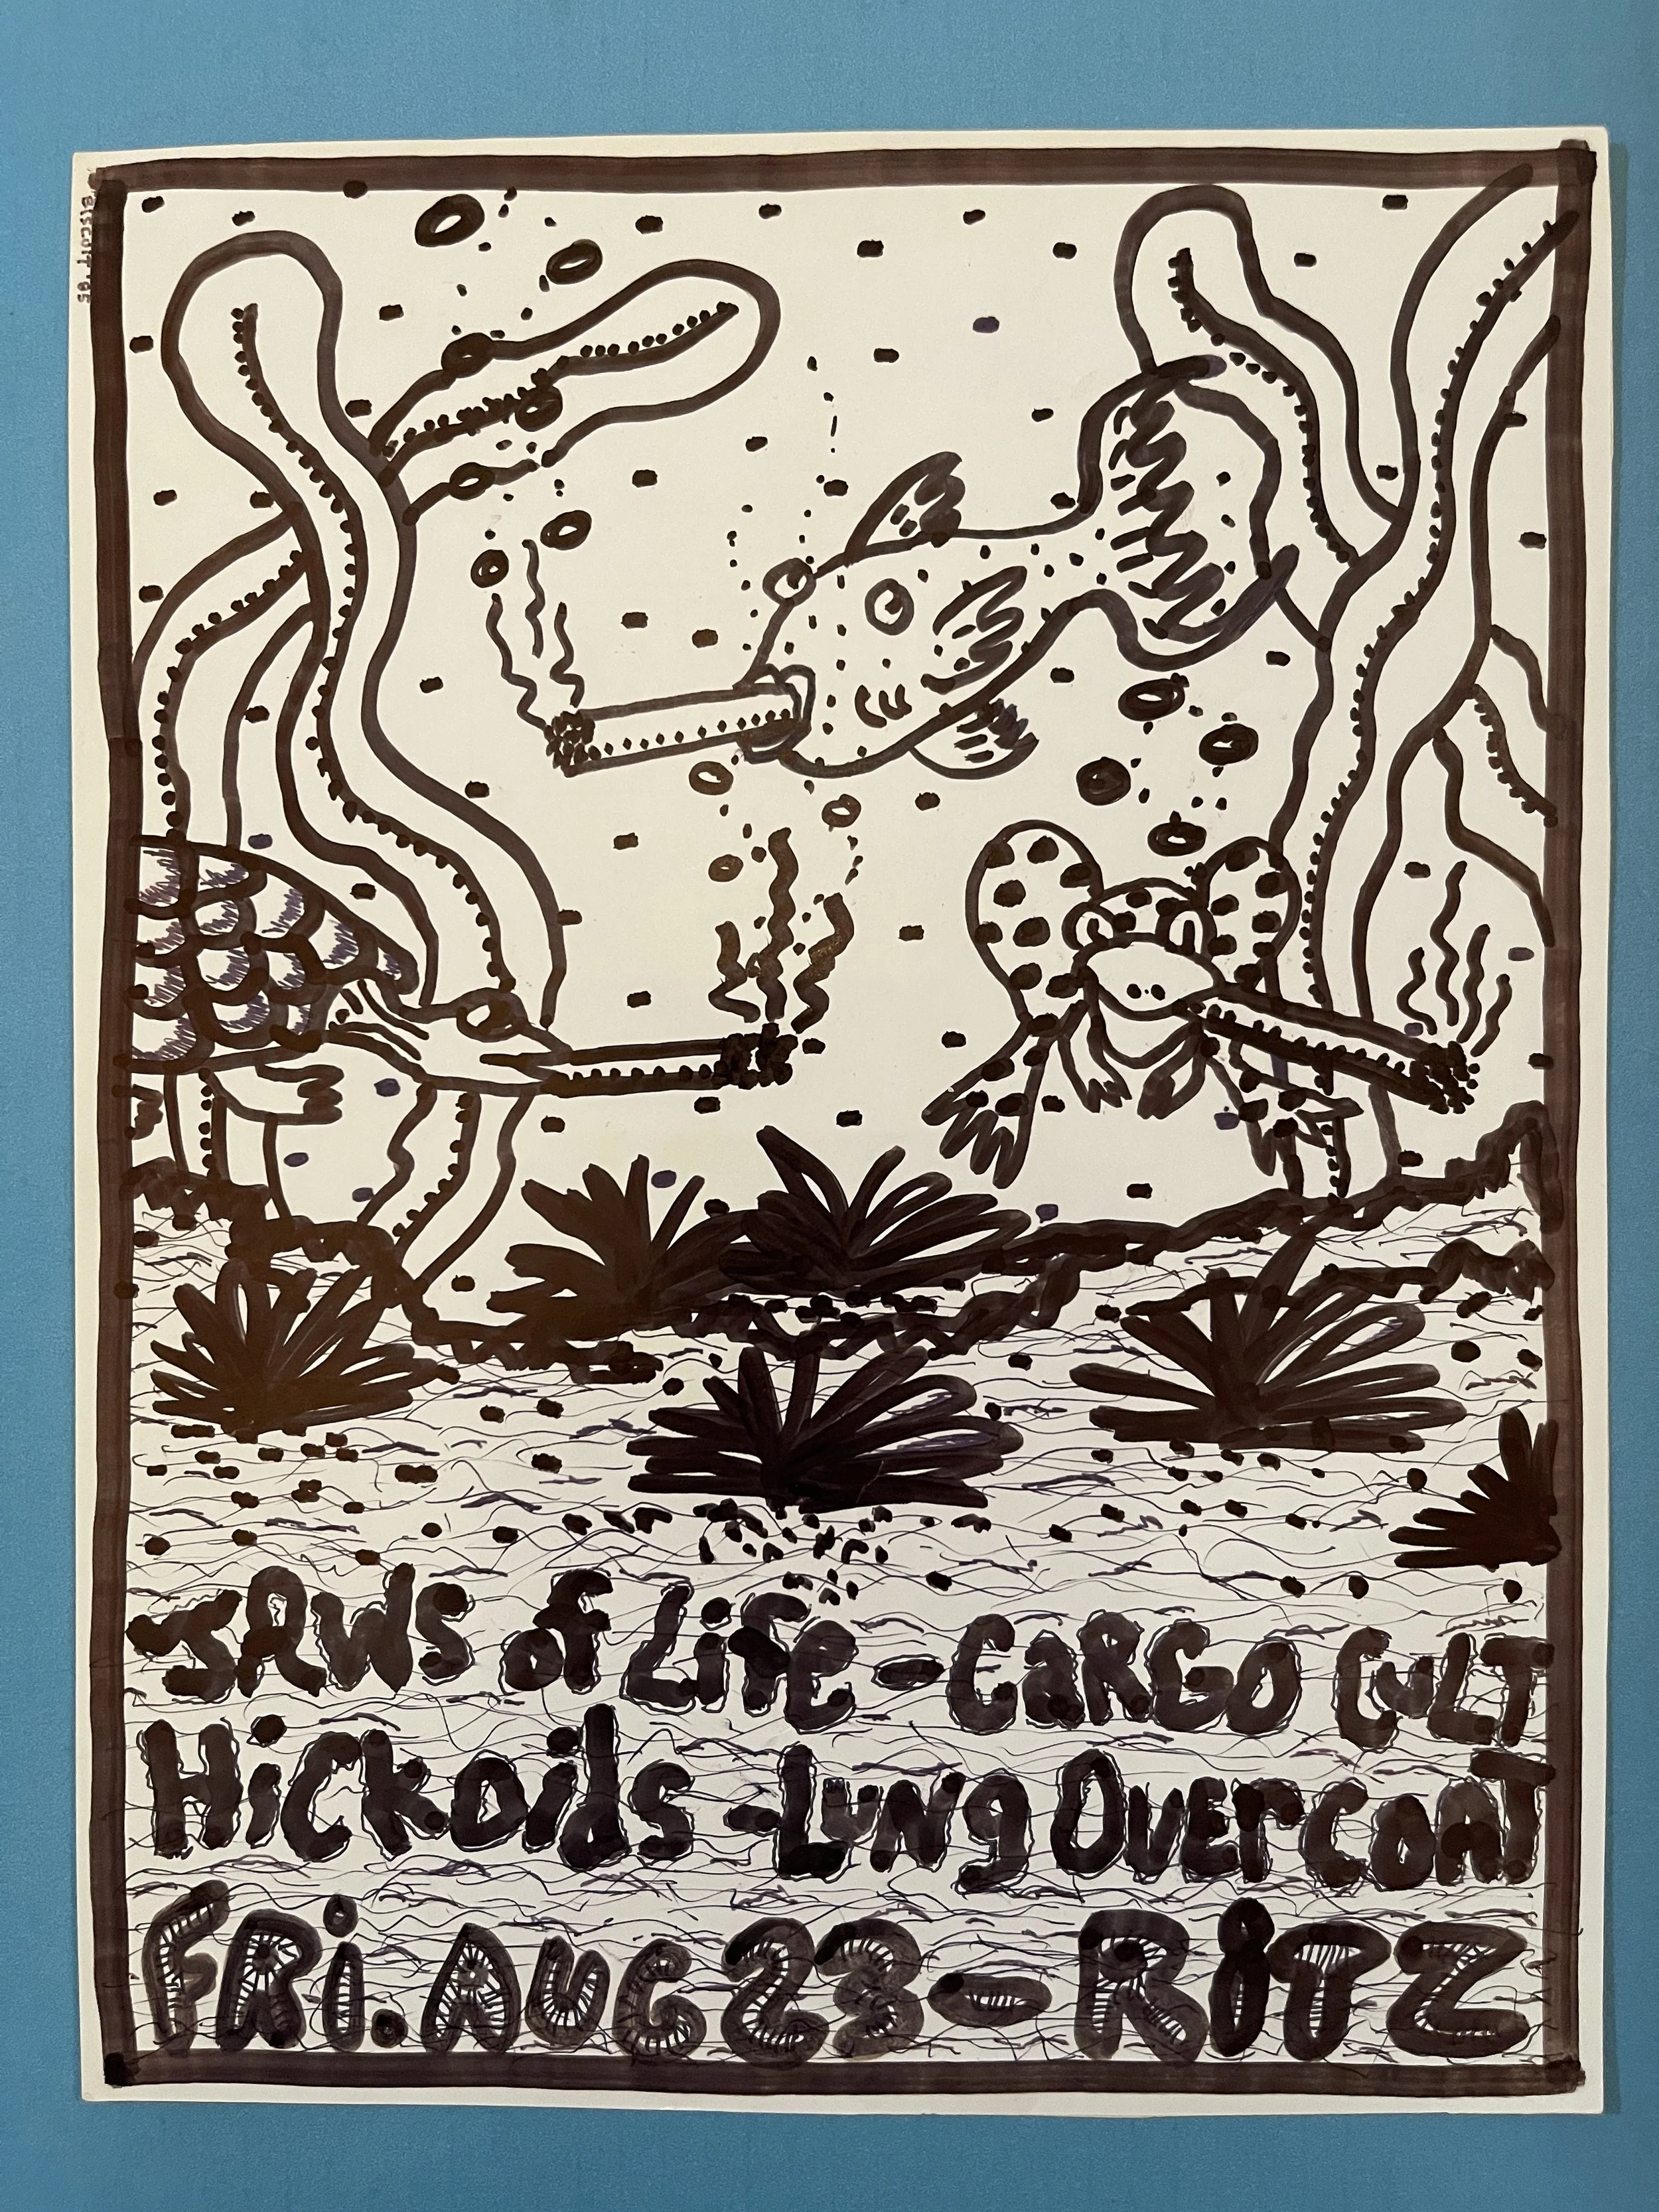 BISCUIT '85
JAWS of Life - CaRGO CuLT
Hickoids - Lung OvErcoaT
FRi. AUG 23 - RiTZ